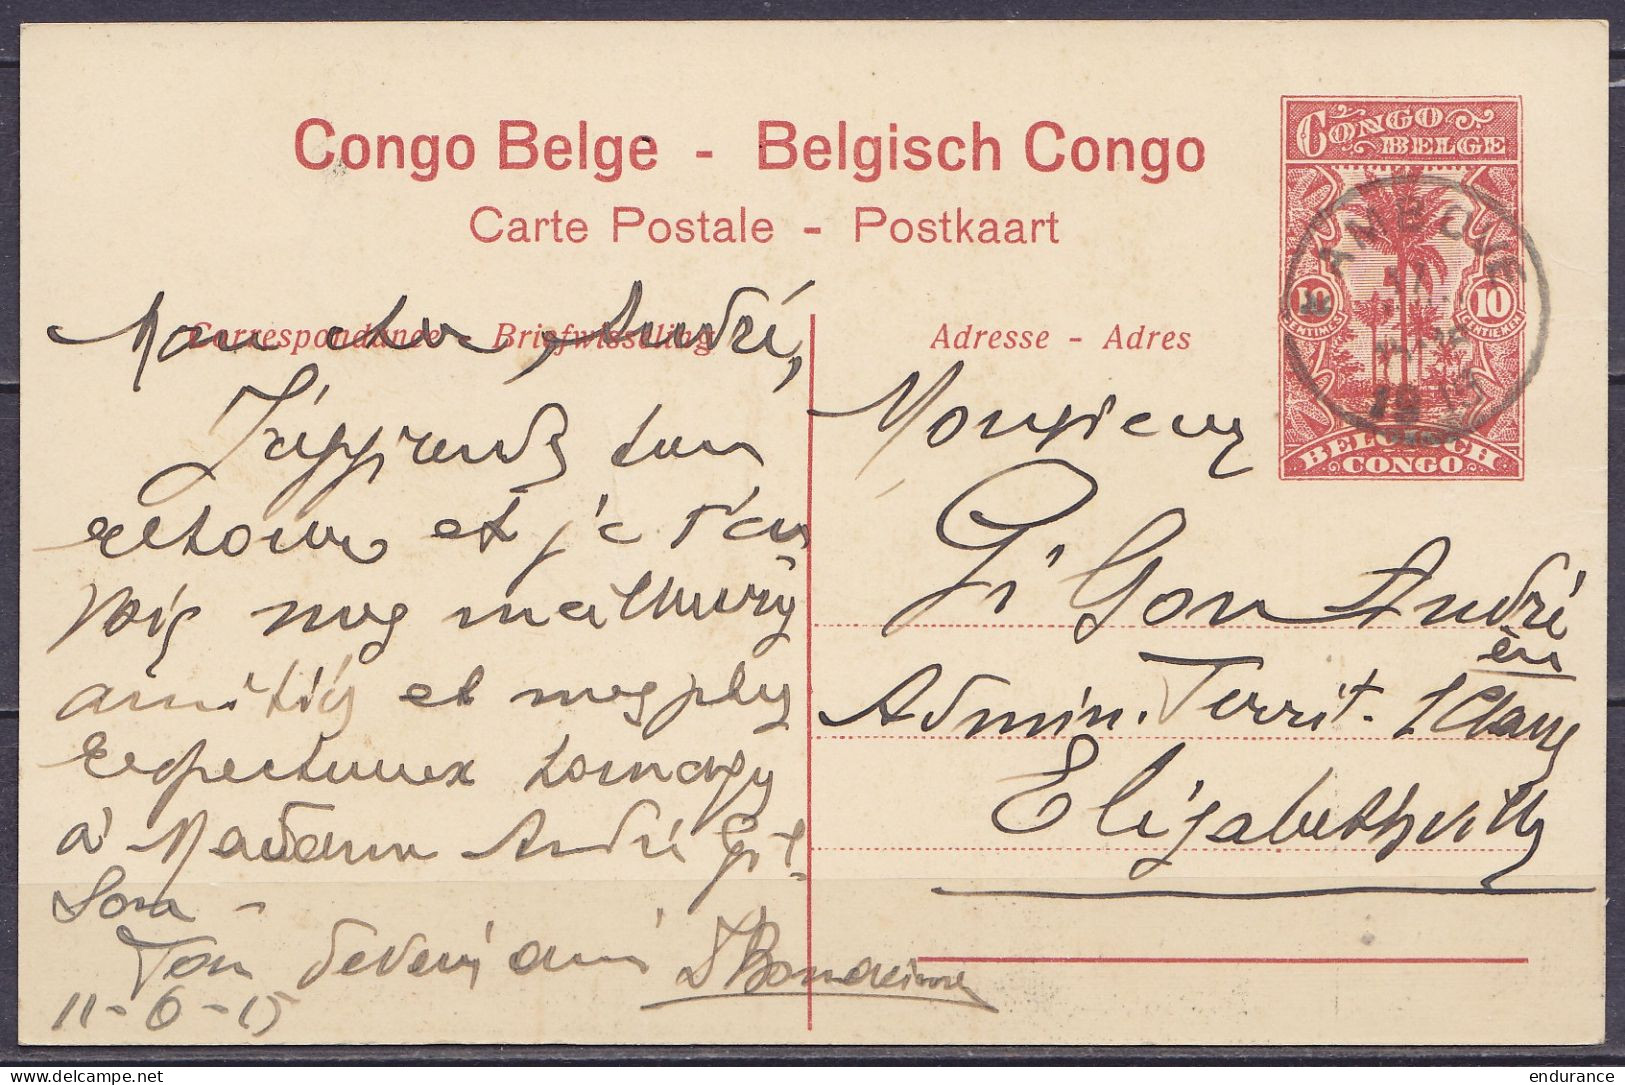 Congo Belge - Belgisch Congo
Carte Postale - Postkaart
CONGO
BELGE
10
CENTIMES
10
CENTIEMEN
BELGISCH
CONGO
KAMBOVE
Correspondance - Briefwisseling
Adresse - Adres
Mon cher André,
J'apprends ton
retour et je t'en
vois mes meilleurs
amitiés et mes plus
respectueux homages
à Madame André Gil-
son -
Ton devoué ami
11-6-15
Monsieur
Gilson André
Admin. Territ. 1 Classe
Elisabethville
www.delcampe.net
endurance